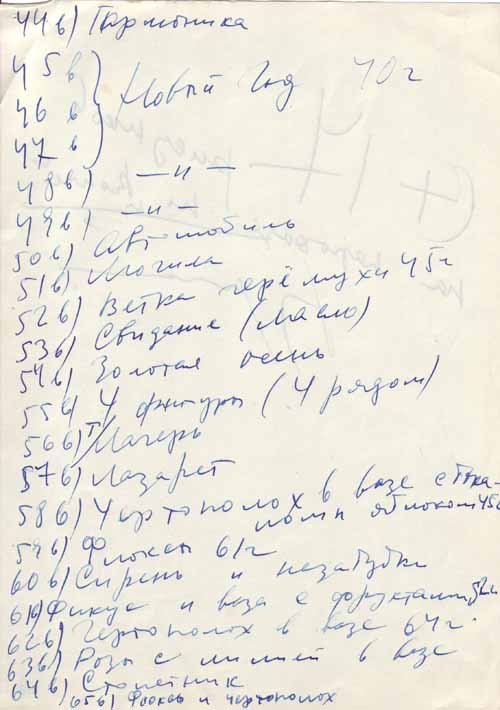 44в) Гармоника
45в
46в } Новый Год 40г
47в
48в) —〃—
49в) —〃—
50в) Автомобиль
51в) Могила
52в) Ветка черёмухи 45г
53в) Свидание (масло)
54в) Золотая осень
55в) 4 фигуры (4 рядом)
56в) Лагерь
57в) Лазарет
58в) Чертополох в вазе с
яблоком 45г
59в) Флоксы 61г
60в) Сирень и незабудки
61в) Фикус и ваза с фруктами 52г
62в) Чертополох в вазе 64г.
63в) Розы с лилией в вазе
64в) Столетник
65в) Флоксы и чертополох